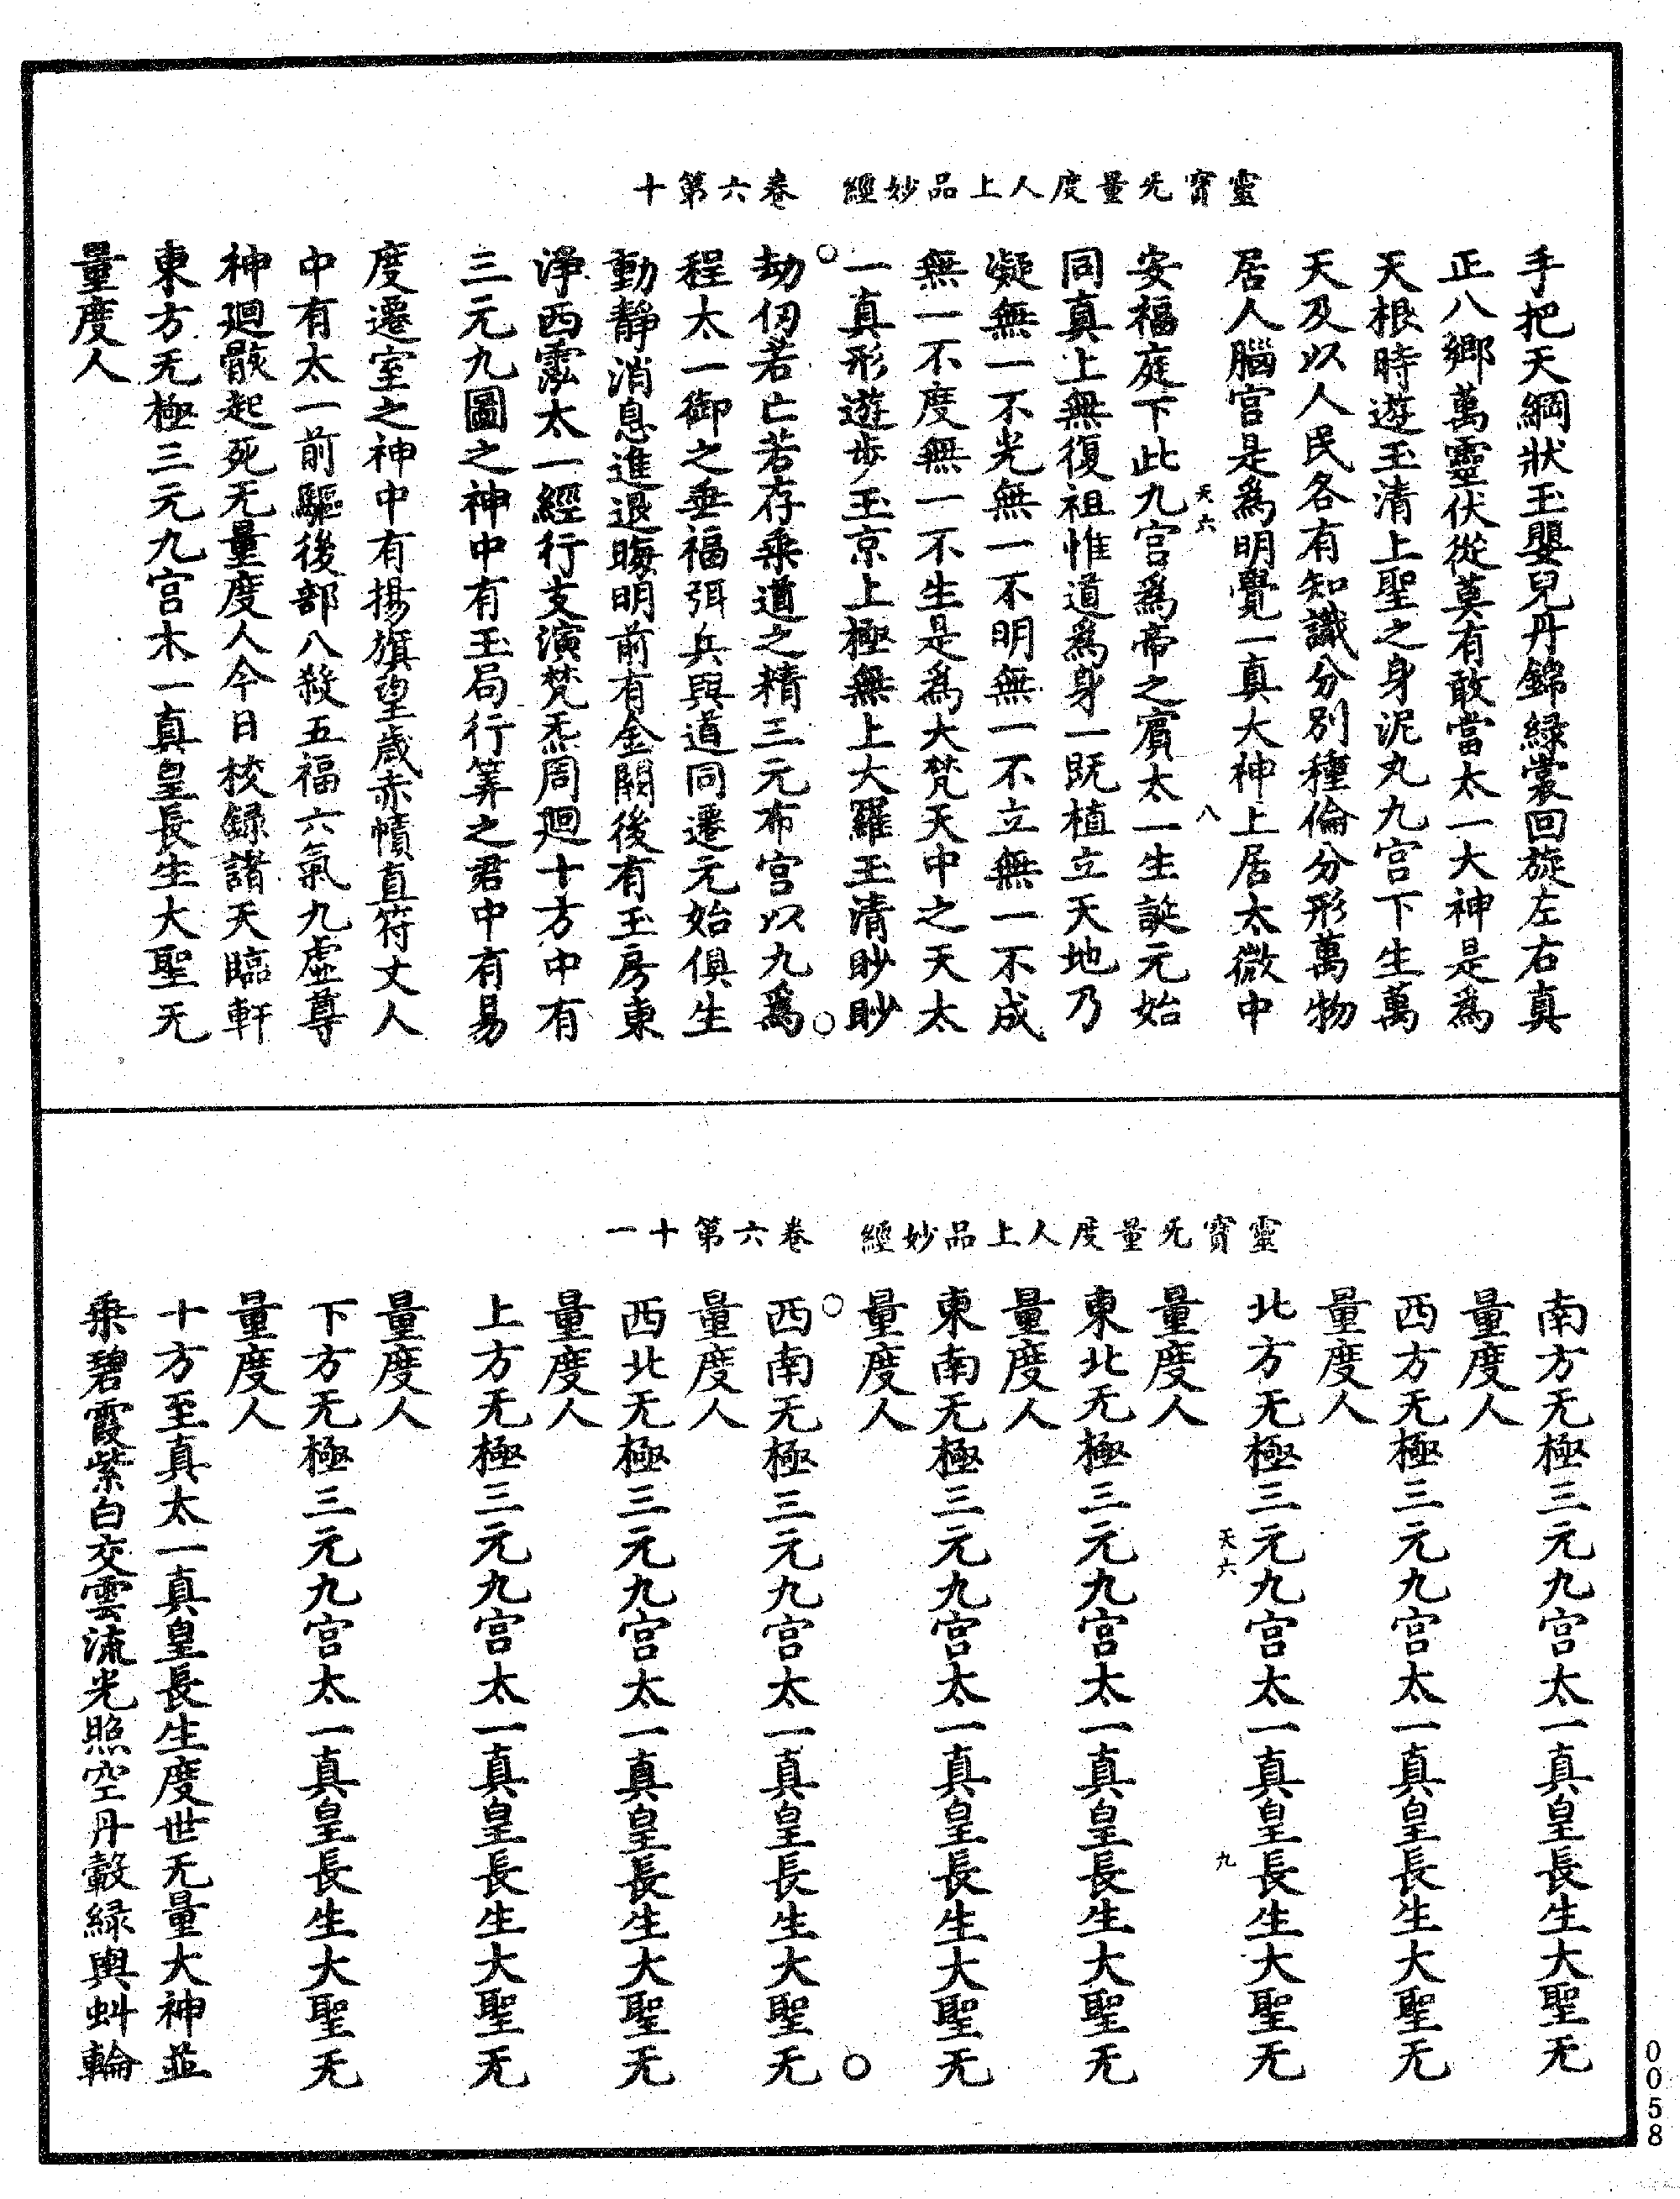 靈寶无量度人上品妙經　卷六第十
手把天綱狀玉嬰兒丹錦綠裳回旋左右真
正八鄉萬靈伏從莫有敢當太一大神是為
天根時遊玉清上聖之身泥丸九宮下生萬
天及以人民各有知識分別種倫分形萬物
居人腦宮是為明覺一真大神上居太微中
天六　八
安福庭下此九宮為帝之賓太一生誕元始
同真上無復祖惟道為身一既植立天地乃
凝無一不光無一不明無一不立無一不成
無一不度無一不生是為大梵天中之天太
一真形遊步玉京上極無上大羅玉清眇眇
劫仞若亡若存乘道之精三元布宮以九為
程太一御之垂福弭兵與道同遷元始俱生
動靜消息進退晦明前有金關後有玉房東
淨西靈太一經行支演梵炁周迴十方中有
三元九圖之神中有玉局行筭之君中有易
度遷室之神中有揚旗皇歲赤幘直符丈人
中有太一前驅後部八殺五福六氣九虛尊
神迴骸起死无量度人今日校録諸天臨軒
東方无極三元九宮木一真皇長生大聖无
量度人
靈寶无量度人上品妙經　卷六第十一
南方无極三元九宮太一真皇長生大聖无
量度人
西方无極三元九宮太一真皇長生大聖无
量度人
北方无極三元九宮太一真皇長生大聖无
天六　九
量度人
東北无極三元九宮太一真皇長生大聖无
量度人
東南无極三元九宮太一真皇長生大聖无
量度人
西南无極三元九宮太一真皇長生大聖无
量度人
西北无極三元九宮太一真皇長生大聖无
量度人
上方无極三元九宮太一真皇長生大聖无
量度人
下方无極三元九宮太一真皇長生大聖无
量度人
十方至真太一真皇長生度世无量大神並
乘碧霞紫白交雲流光照空丹轂緑輿虯輪
0058